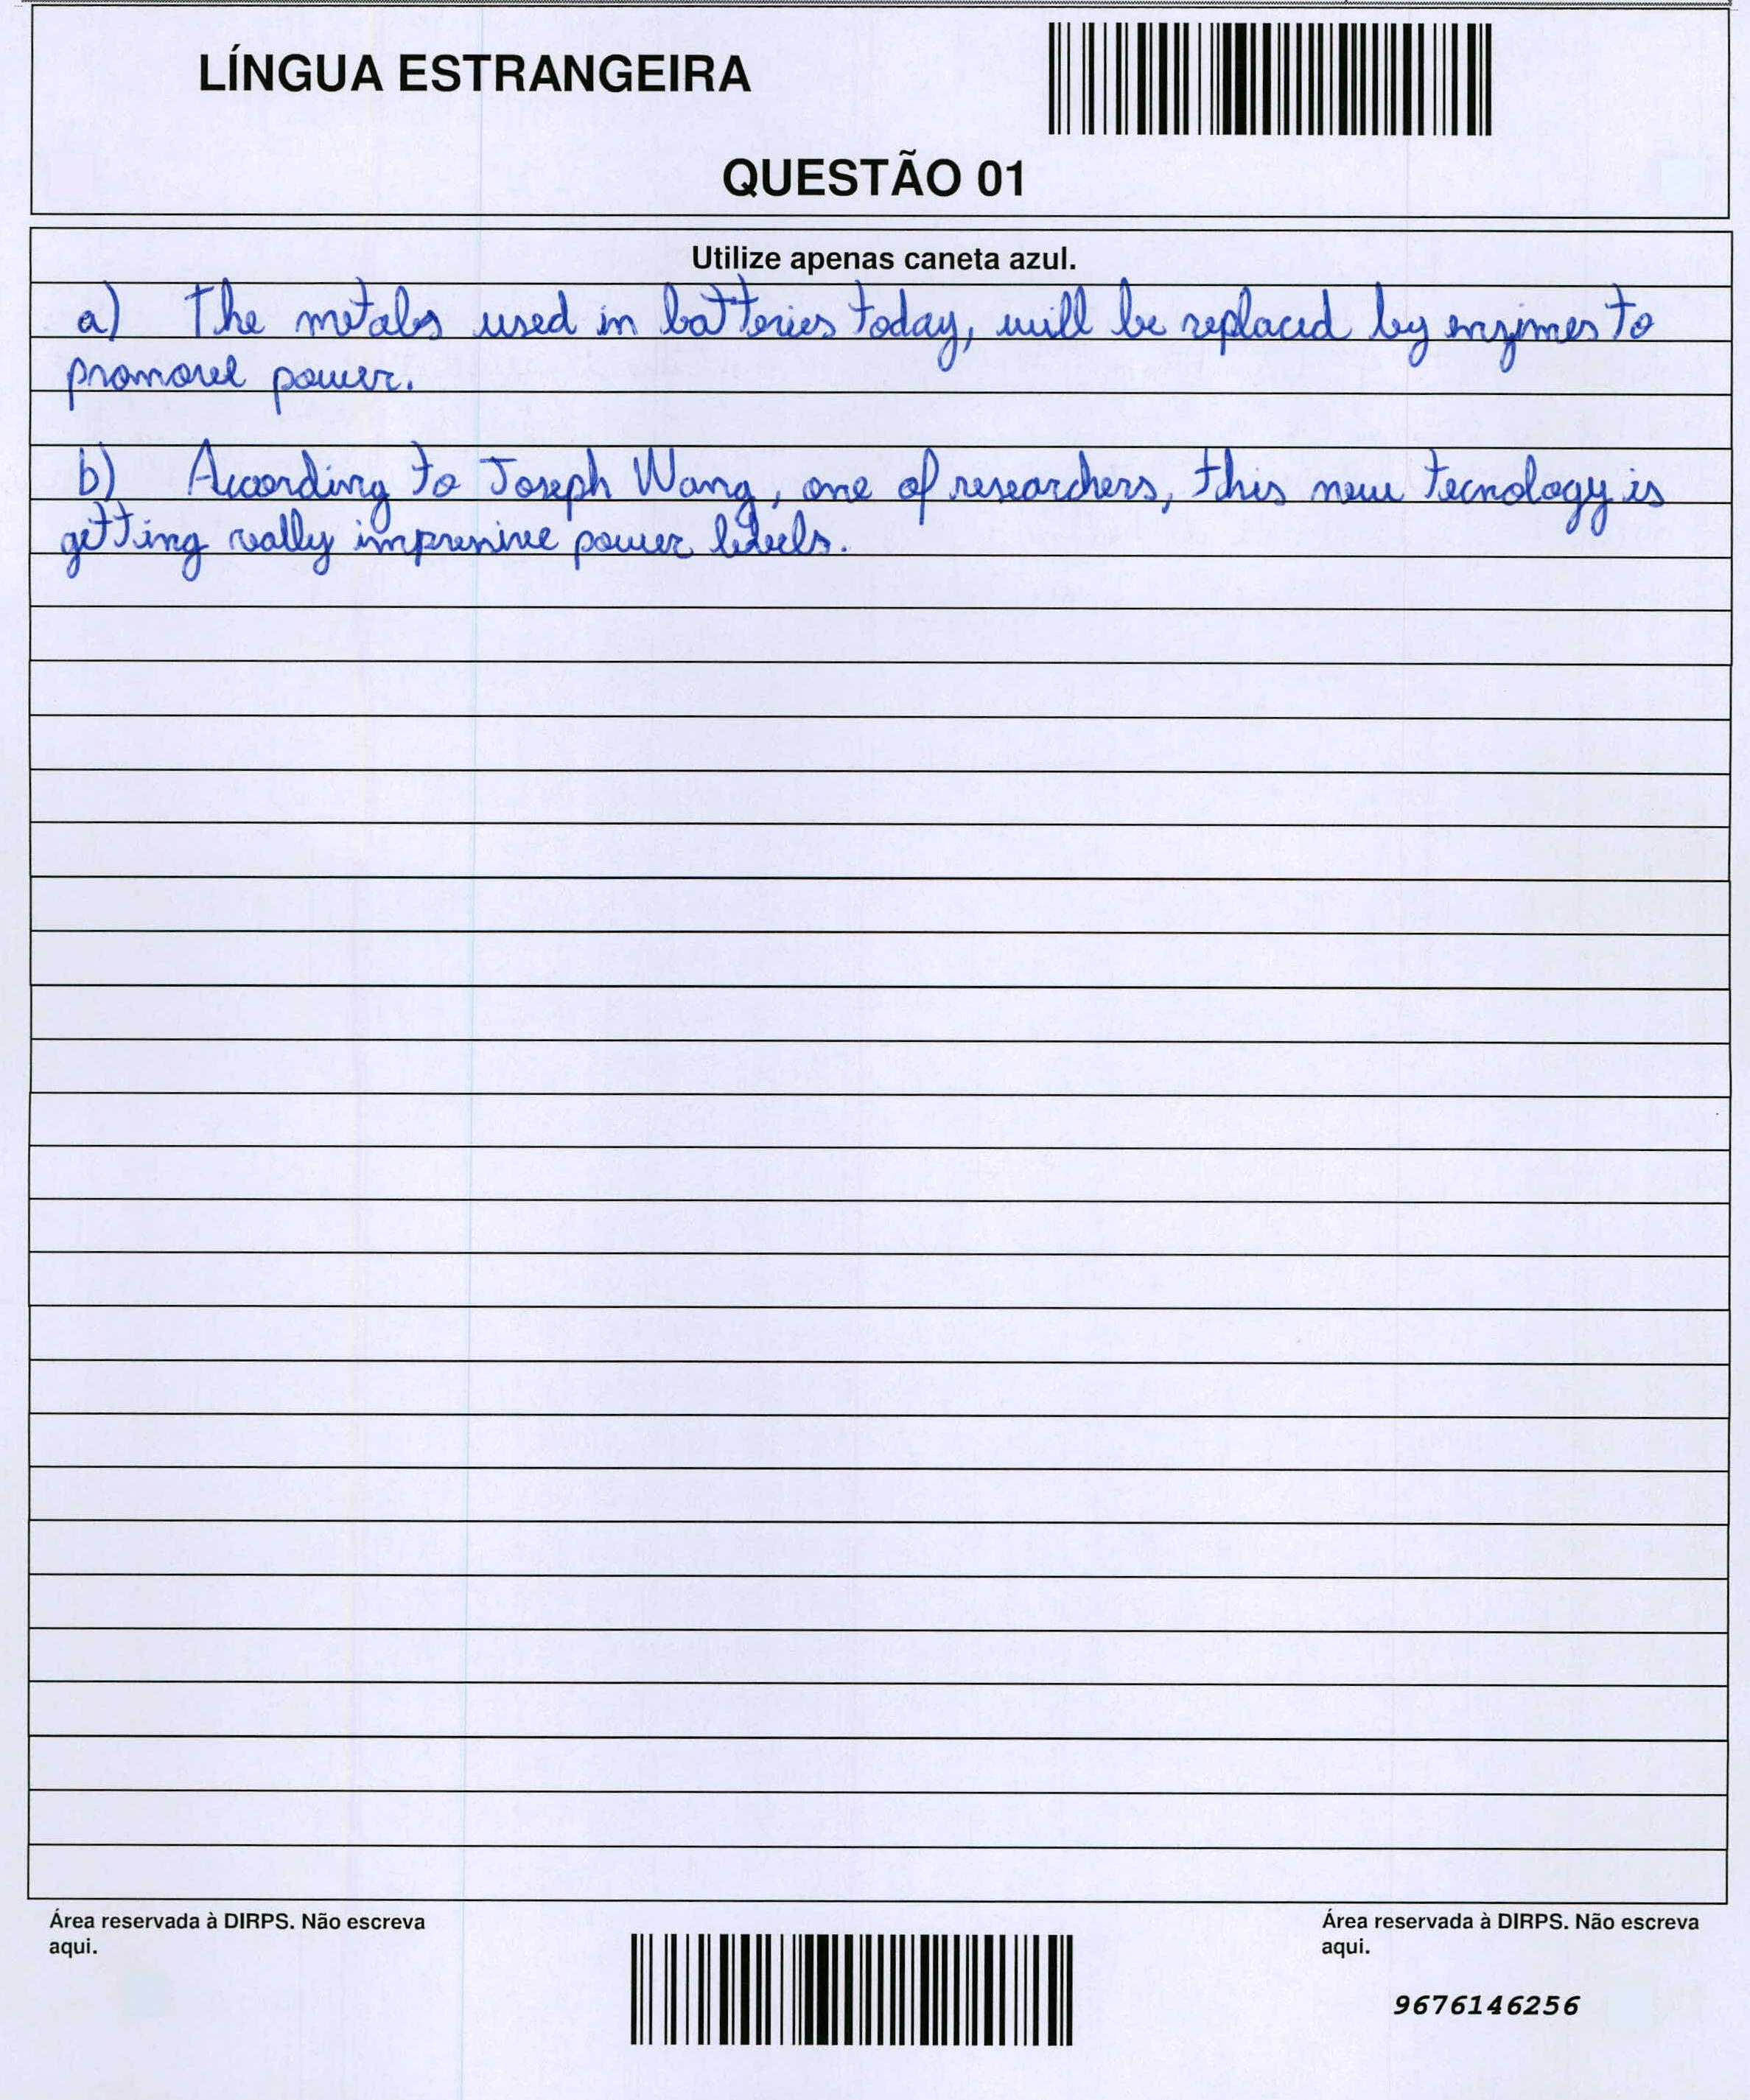 LÍNGUA ESTRANGEIRA
QUESTÃO 01
Utilize apenas caneta azul.
a) The metals used in batteries today, will be replaced by enzimes to
promovel power.
b) According to Joseph Wang, one of researchers, this new tecnology is
getting really impressive power levels.
Área reservada à DIRPS. Não escreva
aqui.
Área reservada à DIRPS. Não escreva
aqui.
9676146256